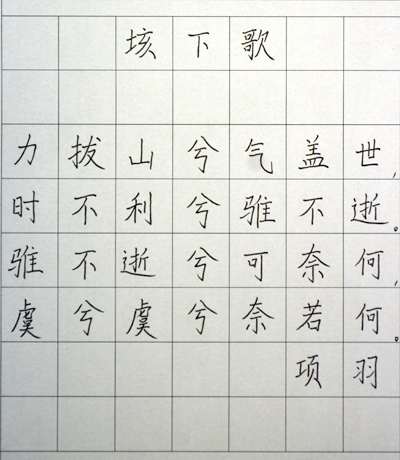 垓下歌
力拔山兮气盖世,
时不利兮骓不逝。
骓不逝兮可奈何,
虞兮虞兮奈若何。
项羽